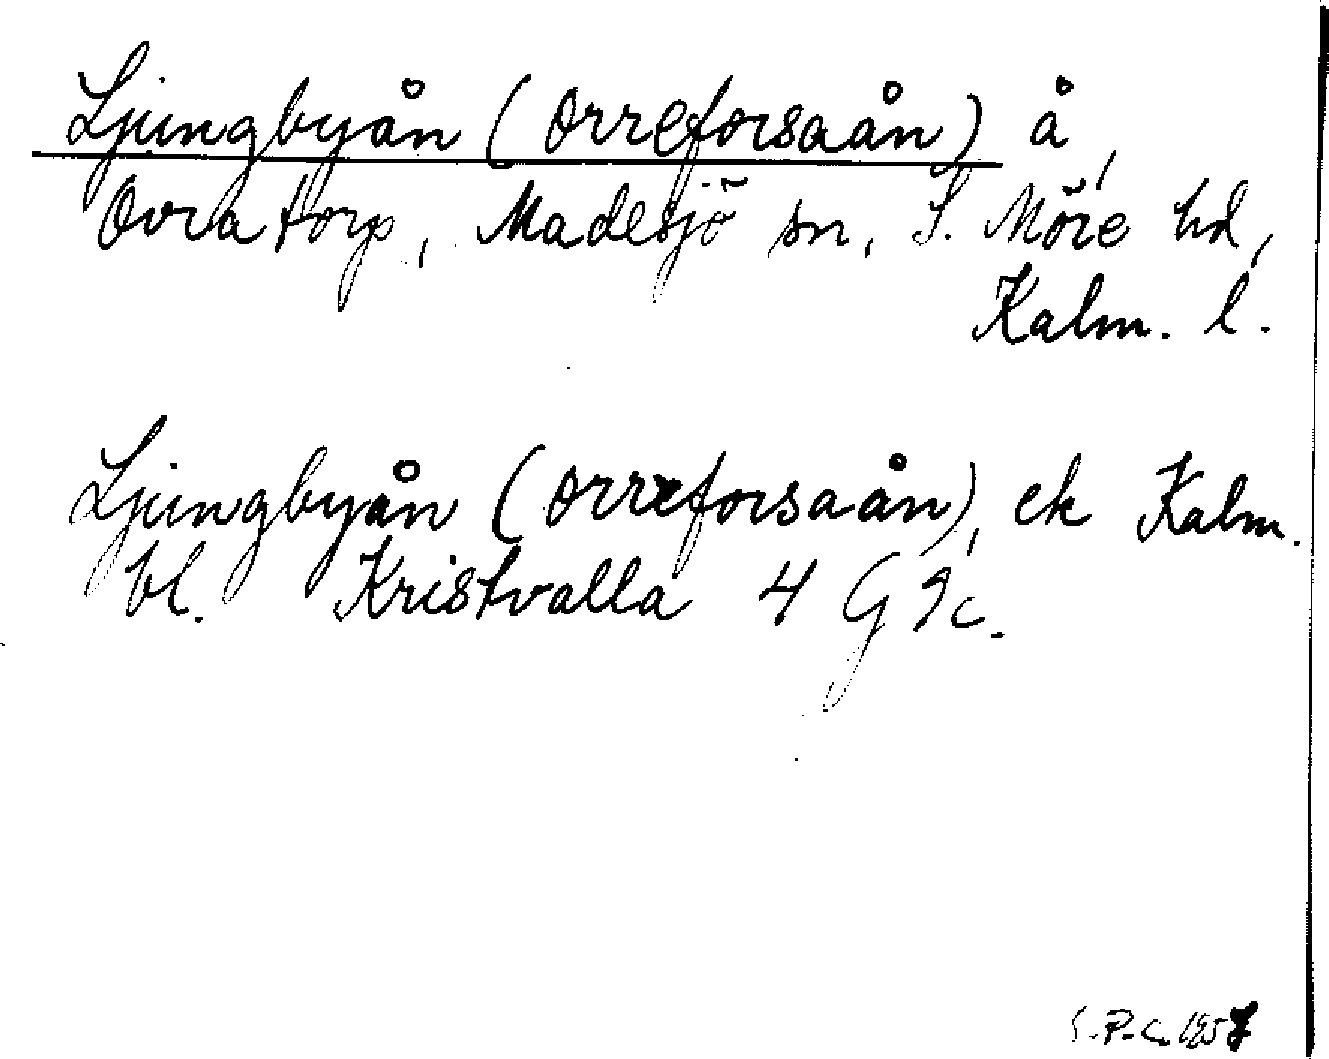 Ljungbyån (Orreforsaån) å,
Ovratorp, Madesjö sn, S. Möre hd,
Kalm. l.
Ljungbyån (Orreforsaån), ek Kalm.
bl. Kristvalla 4 G 9c.